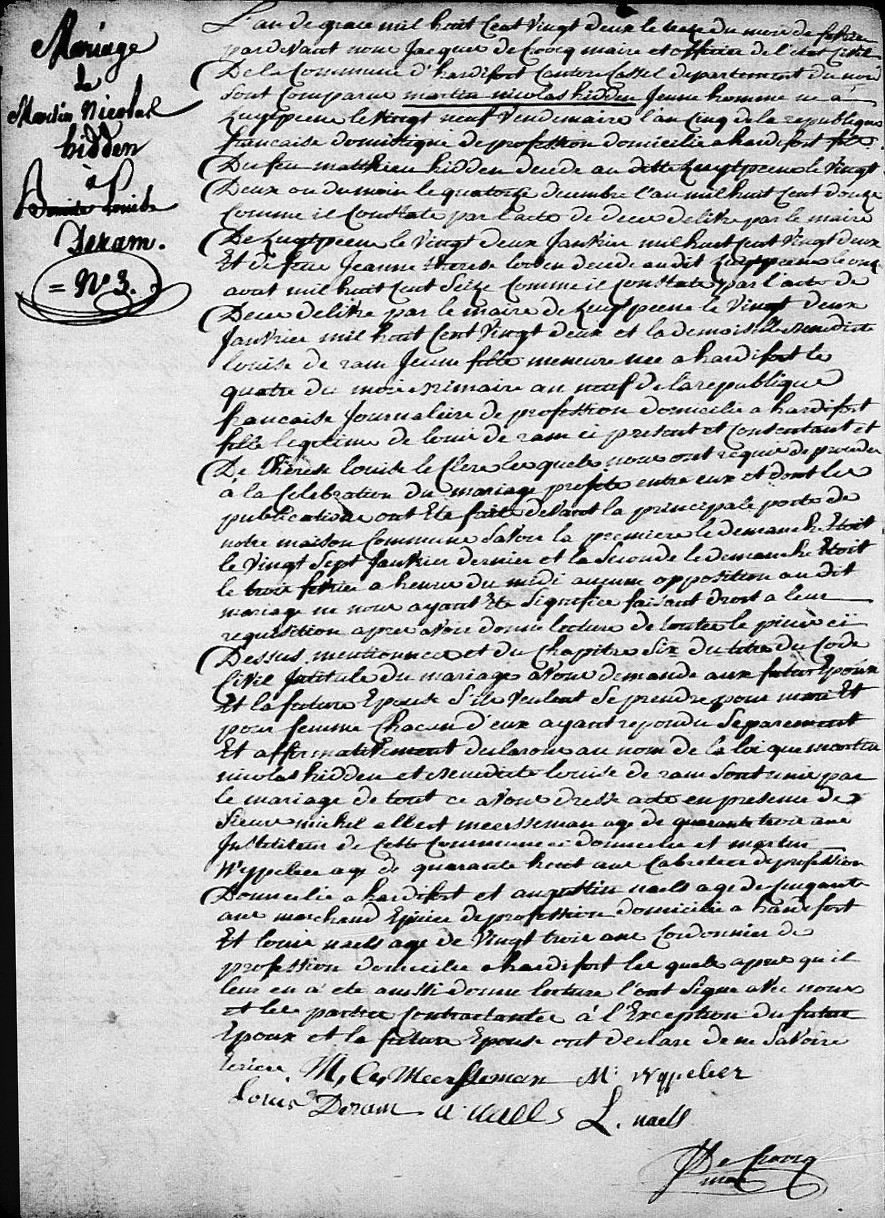 Mariage
de
Martin Nicolas
hidden
à
Louise
Deram.
= N° 3. =
L'an de grace mil huit Cent Vingt deux le treize du mois de fevrier
pardevant nous Jacques de Croocq maire et officier de l'etat Civil
De la Commune d'hardifort Canton Cassel departement du nord
sont Comparus martin nicolas hidden Jeune homme ne a
Zuytpeene le Vingt neuf Vendemaire l'an Cinq de la republique
francaise domestique de profession domicilie a hardifort fils
Du feu matthieu hidden decede au dit Zuytpeene le Vingt
Deux du mois le quatorze decembre l'an mil huit Cent douze
Comme il Constate par l'acte de dece delivre par le maire
De Zuytpeene le Vingt deux Janvier mil huit Cent Vingt deux
Et de feue Jeanne therese decede au dit Zuytpeene le onze
aout mil huit Cent Seize Comme il Constate par l'acte de
Dece delivre par le maire de Zuytpeene le Vingt deux
Janvier mil huit Cent Vingt deux et la demoiselle Benedicte
louise de ram Jeune fille meneure nee a hardifort le
quatre du mois nimaire an neuf de la republique
francaise Journaliere de profession domicilie a hardifort
fille legitime de louis de ram ci present et Consentant et
De therese louise le Clerc lesquels nous ont requis de proceder
à la Celebration du mariage projete entre eux et dont les
publications ont ete faite devant la principale porte de
notre maison Commune Savoir la premiere le demanche etoit
le Vingt Sept Janvier dernier et la Seconde le demanche etoit
le trois fevrier a heure du midi aucune opposition au dit
mariage ne nous ayant ete Signifiee faisant droit a leur
requisition apres avoir donne lecture de toutes les pieces ci
Dessus mentionnees et du Chapitre Six du titre du Code
Civil Intitule du mariage avons demande aux futur Epoux
Et la future Epouse S'ils Veulent Se prendre pour mari Et
pour femme Chacun d'eux ayant repondu Separement
Et affirmativement declarons au nom de la loi que martin
nicolas hidden et Benedicte louise de ram sont unis par
le mariage de tout ce avons dresse acte en presence de
Sieurs michel albert meersseman age de quarante trois ans
Instituteur de Cette Commune domicilie et martin
Wyppelier age de quarante huit ans Cabaretier de profession
Domicilie a hardifort et augustin naels age de Cinquante
ans marchand Epicier de profession domicilie a hardifort
Et louis naels age de Vingt trois ans Cordonnier de
profession domicilie a hardifort les quels apres qu'il
leur en a ete aussi donne lecture l'ont Signe avec nous
et les parties Contractantes à l'Exception du futur
Epoux et la future Epouse ont declare de ne Savoir
ecrire. M, C, Meersseman M. Wyppelier
louis Deram A naels L. naels
De Croocq
maire